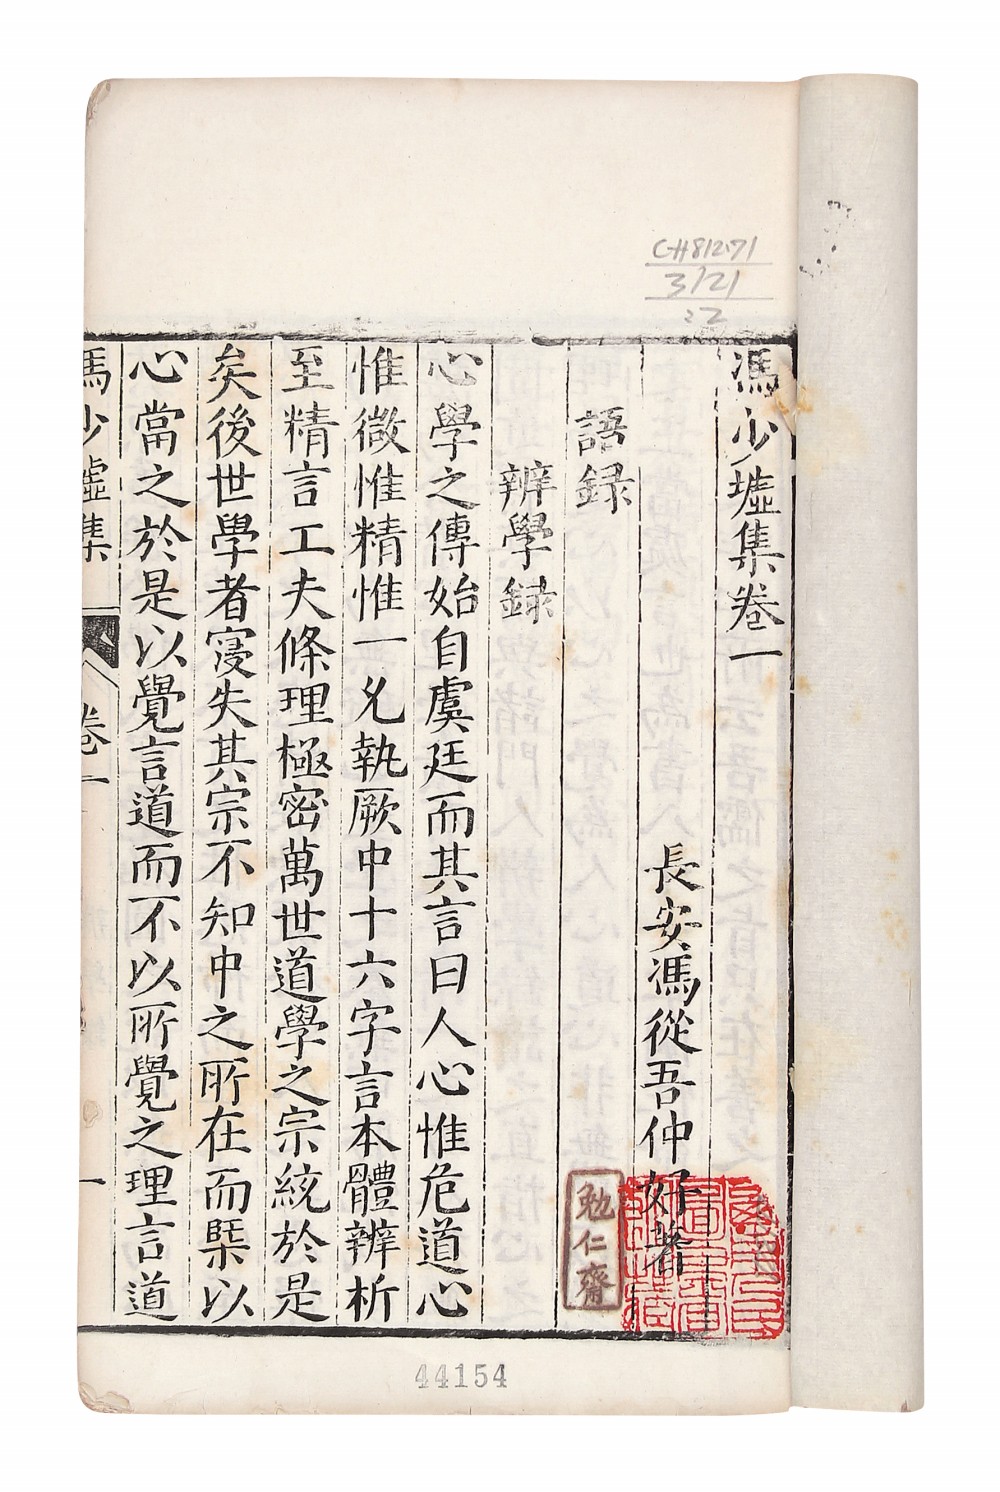 CH812·71
3121
22
馮少墟集卷一
長安馮從吾仲好著
語録
辨學録
心學之傳始自虞廷而其言曰人心惟危道心
惟微惟精惟一允執厥中十六字言本體辨析
至精言工夫條理極密萬世道學之宗統於是
矣後世學者寖失其宗不知中之所在而槩以
心當之於是以覺言道而不以所覺之理言道
馮少墟集
卷一
一
勉仁齋
44154